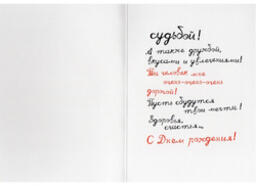 судьбой!
А также дружбой,
вкусами и увлечениями!
Ты человек мне
очень-очень-очень
дорогой!
Пусть сбудутся
твои мечты!
Здоровья,
счастья...
С Днем рождения!